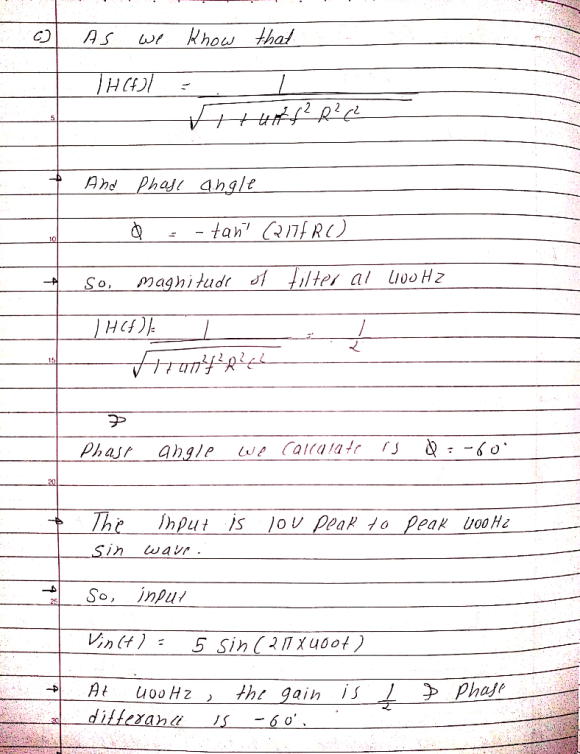 c) As we know that
|H(f)| = 1
√1 + 4π²f² R²C²
5
→ And Phase angle
Φ = - tan⁻¹ (2πfRC)
10
→ So, magnitude of filter at 400Hz
|H(f)|= 1 = 1
√1+4π²f²R²C² 2
15
⇒
Phase angle we Calcalate is Φ = -60°
20
→ The Input is 10V Peak to Peak 400Hz
sin wave.
→ So, input
25
Vin(t) = 5 sin(2π×400t)
→ At 400Hz, the gain is 1/2 ⇒ Phase
differance is -60°.
30